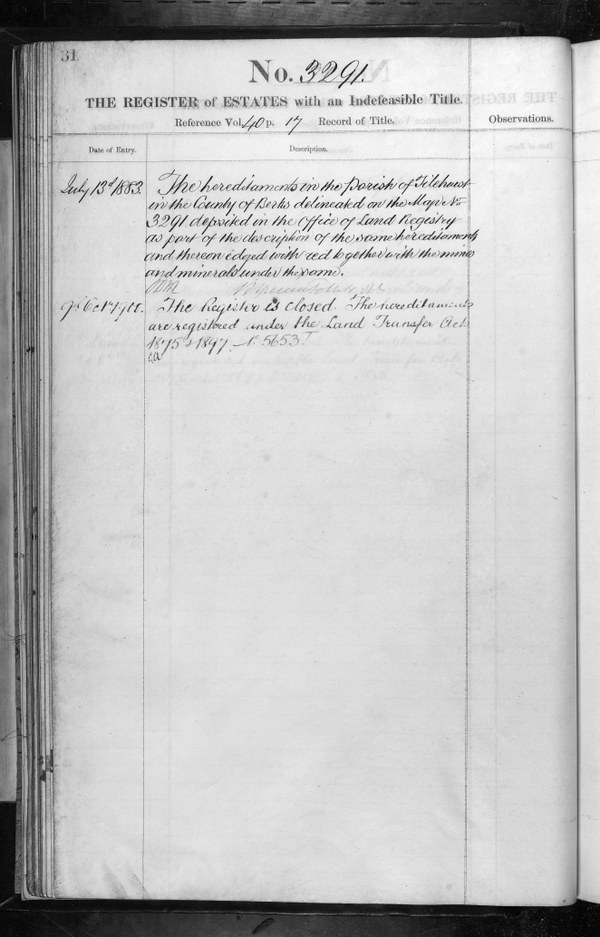 31
No. 3291.
THE REGISTER of ESTATES with an Indefeasible Title.
Reference Vol. 40 p. 17 Record of Title.
Observations.
Date of Entry.
Description.
July 13th 1883. The hereditaments in the Parish of Tilehurst
in the County of Berks delineated on the Map No
3291 deposited in the Office of Land Registry
as part of the description of the same hereditaments
and thereon edged with red together with the mines
and minerals under the same.
Oct 1918. The Register is closed. The hereditaments
are registered under the Land Transfer Acts
1875 & 1897 No. 5653